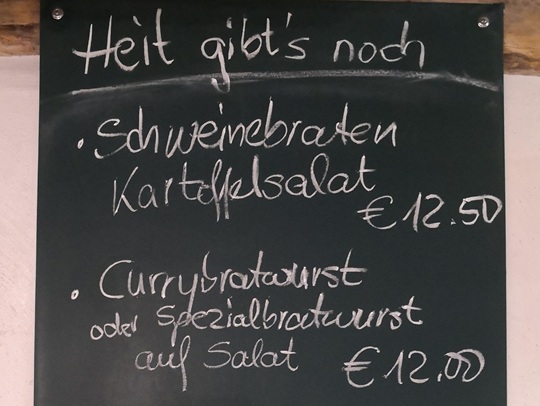 Heit gibt's noch
• Schweinebraten
Kartoffelsalat
€ 12.50
• Currybratwurst
oder Spezialbratwurst
auf Salat € 12.00